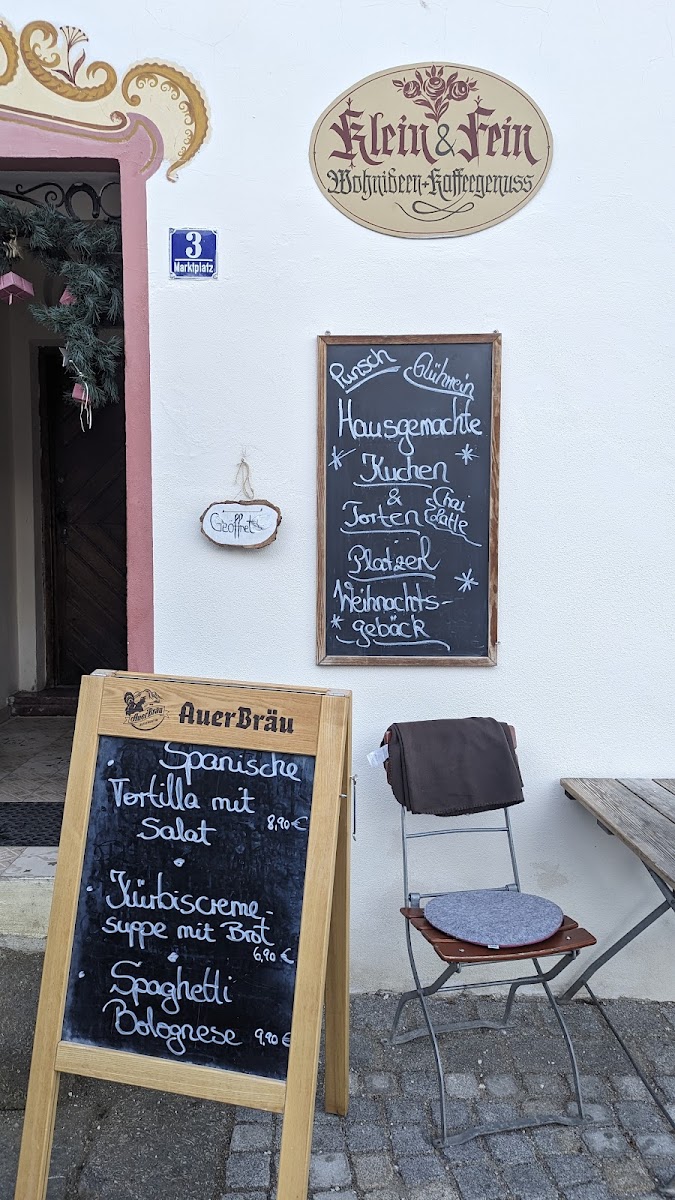 Klein & Fein
Wohnideen + Kaffeegenuss
3
Marktplatz
Punsch Glühwein
Hausgemachte
Kuchen
&
Torten Chai
Latte
Platzerl
Weihnachts-
gebäck
Geöffnet
AuerBräu
AuerBräu
Spanische
Tortilla mit
Salat 8,90 €
Kürbiscreme-
suppe mit Brot
6,90 €
Spaghetti
Bolognese 9,90 €